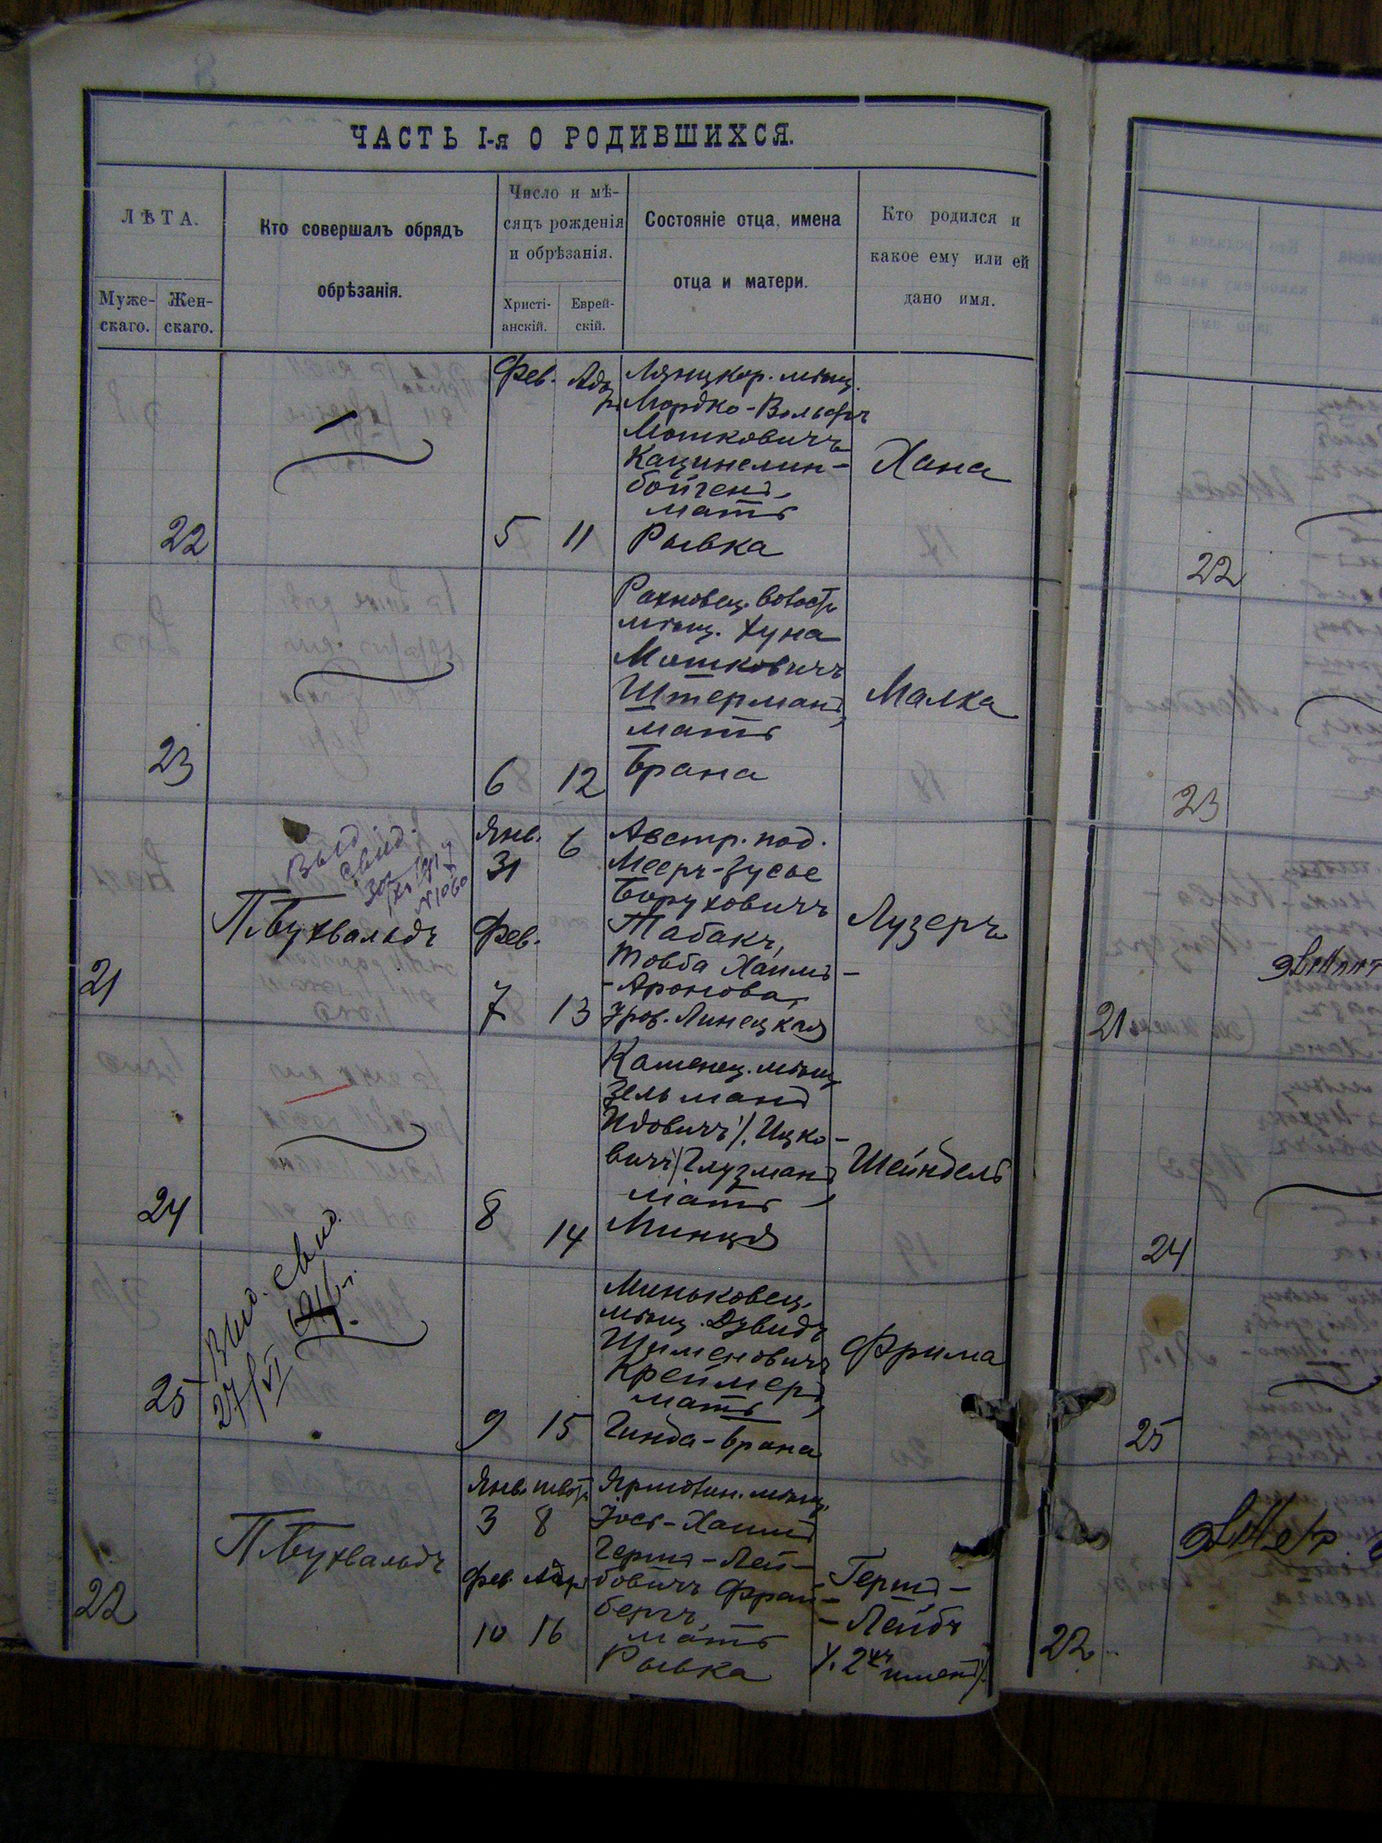 ЧАСТЬ I-я О РОДИВШИХСЯ.
ЛѢТА.
Муже-
скаго.
Жен-
скаго.
Кто совершалъ обрядъ
обрѣзанія.
Число и мѣ-
сяцъ рожденія
и обрѣзанія.
Христі-
анскій.
Еврей-
скій.
Состояніе отца, имена
отца и матери.
Кто родился и
какое ему или ей
дано имя.
22
Фев.
5
11
Лянцкор. мѣщ.
Мордко-Вольфъ
Мошковичъ
Кацинелин-
бойгенъ,
мать
Рывка
Хана
23
6
12
мѣщ. Хуна
Мошковичъ
Штерманъ,
мать
Брана
Малка
21
Выд.
свид.
№1060
П. Бухвальдъ
Янв.
31
6
Фев.
7
13
Австр. под.
Мееръ-Зусье
Боруховичъ
Табакъ,
Товба Хаимъ-
-Аронова,
Уров. Линецкая
Лузеръ
24
8
14
Каменец. мѣщ.
Зельманъ
Идовичъ /. Ицко-
вичъ/ Глузманъ,
мать
Минця
Шейндель
25
Выд. свид.
27/VI 1916 г.
9
15
Миньковец.
мѣщ. Дувидъ
Шимоновичъ
Креймеръ,
мать
Гинда-Врана
Фрима
22
П. Бухвальдъ
Янв.
3
8
Фев.
10
16
Ярмолин. мѣщ.
Іось-Хаимъ
Гершъ-Лей-
бовичъ Фрай-
бергъ,
мать
Рывка
Гершъ-
-Лейбъ
/. 2хъ именъ/.
22
23
21
24
25
22